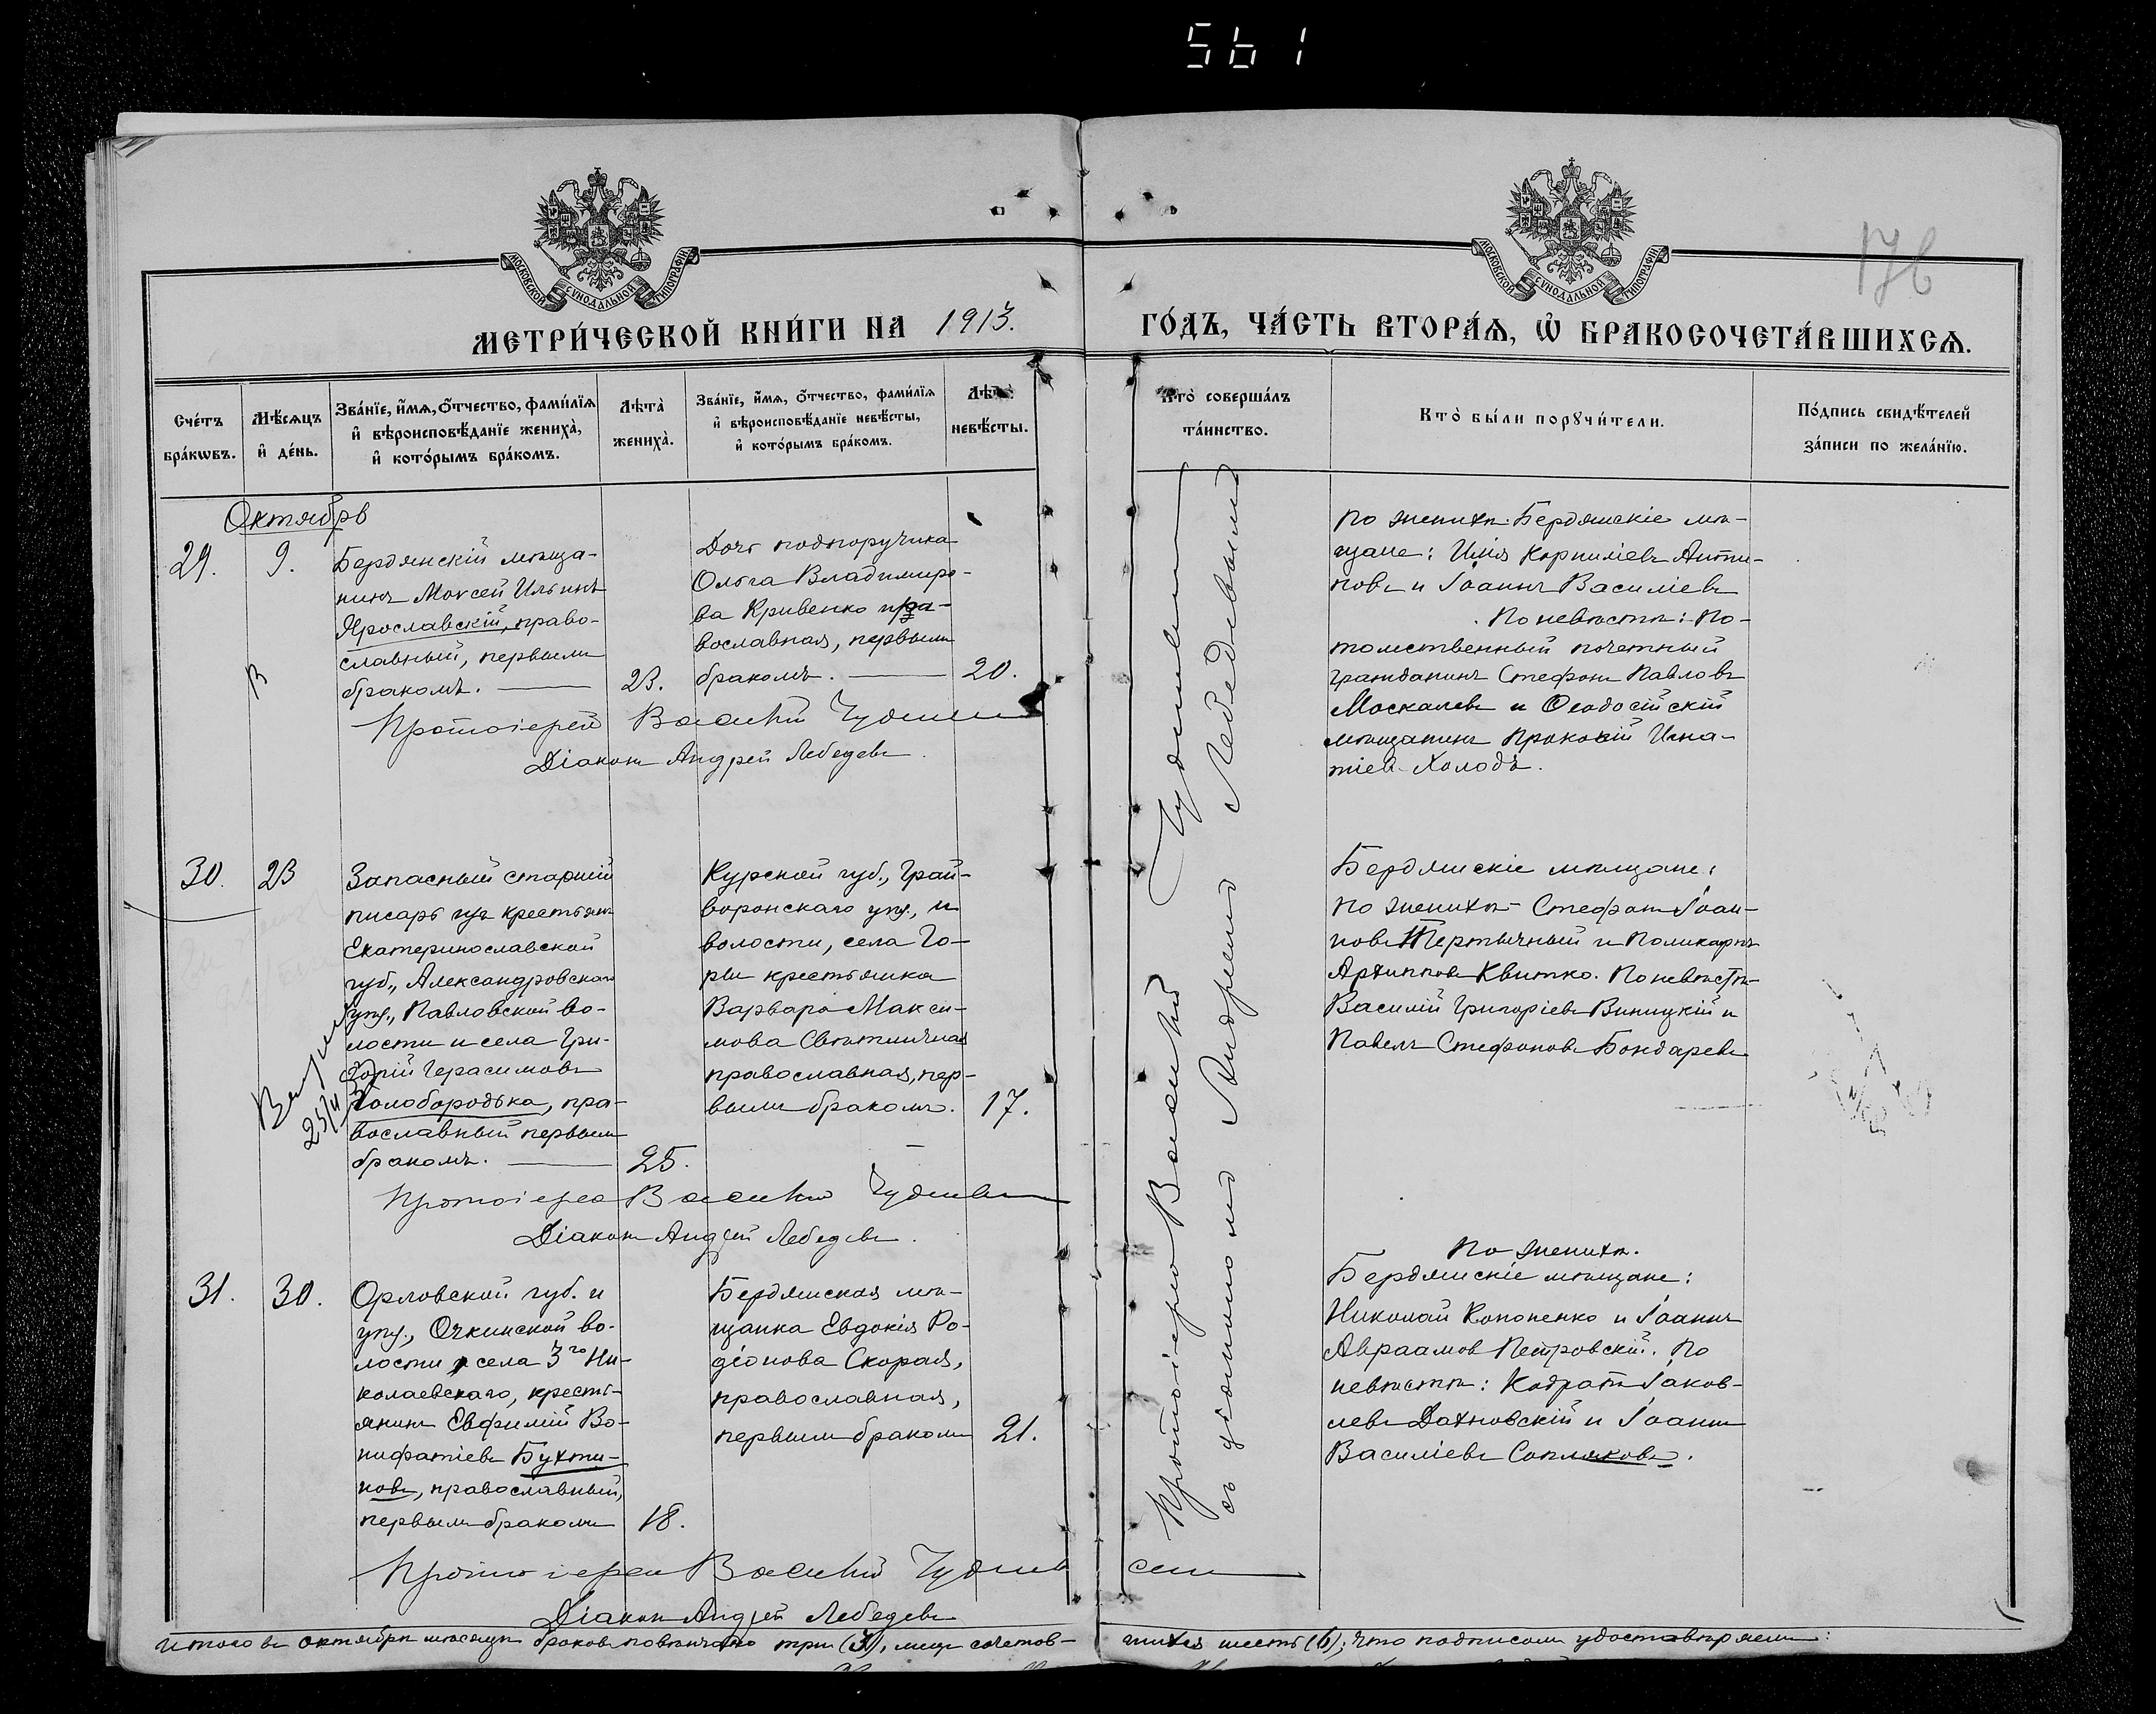 561
176
МОСКОВСКОЙ СѴНОДАЛЬНОЙ ТИПОГРАФІИ
МОСКОВСКОЙ СѴНОДАЛЬНОЙ ТИПОГРАФІИ
МЕТРИ́ЧЕСКОЙ КНИ́ГИ НА 1913.
ГО́ДЪ, ЧА́СТЬ ВТОРА́Ѧ, Ѡ҆ БРАКОСОЧЕТА́ВШИХСѦ.
Сче́тъ
бра́кѡвъ.
Мѣ́сѧцъ
и҆ де́нь.
Зва́нїе, и҆́мѧ, ѻ҆́тчество, фами́лїѧ
и҆ вѣроисповѣ́данїе жениха̀,
и҆ кото́рымъ бра́комъ.
Лѣ́та̀
жениха̀.
Зва́нїе, и҆́мѧ, ѻ҆́тчество, фами́лїѧ
и҆ вѣроисповѣ́данїе невѣ́сты,
и҆ кото́рымъ бра́комъ.
Лѣ́та̀
невѣ́сты.
Кто̀ соверша́лъ
та́инство.
Кто̀ бы́ли порꙋчи́тели.
По́дпись свидѣ́телей
за́писи по жела́нїю.
Октябрь
29. 9.
Бердянскій мѣща-
нинъ Моѵсей Ильинъ
Ярославскій, право-
славный, первымъ
бракомъ. 23.
Дочь подпоручика
Ольга Владимиро-
ва Кривенко пра-
вославная, первымъ
бракомъ. 20.
Протоіерей Василій
Діаконъ Андрей Лебедевъ.
По женихѣ: Бердянскіе мѣ-
щане: Илія Корниліевъ Анти-
повъ и Іоаннъ Василіевъ
По невѣстѣ: По-
томственный почетный
гражданинъ Стефанъ Павловъ
Москалевъ и Ѳеодосійскій
мѣщанинъ Прокопій Игна-
тіевъ Холодъ.
30. 23
Запасный старшій
писарь изъ крестьянъ
Екатеринославской
губ., Александровскаго
уѣз., Павловской во-
лости и села Гри-
горій Герасимовъ
Голобородька, пра-
вославный первымъ
бракомъ. 25.
Курской губ., Грай-
воронскаго уѣз., и
волости, села Го-
ры крестьянка
Варвара Макси-
мова Свѣтличная
православная, пер-
вымъ бракомъ. 17.
Протоіерей Василій
Діаконъ Андрей Лебедевъ.
Бердянскіе мѣщане:
по женихѣ - Стефанъ Іоан-
новъ Тертычный и Поликарпъ
Архиповъ Квитко. По невѣстѣ-
Василій Григоріевъ Виницкій и
Павелъ Стефановъ Бондаревъ
31. 30.
Орловской губ. и
уѣз., Очкинской во-
лости села 3го Ни-
колаевскаго, кресть-
янинъ Евфимій Во-
нифатіевъ Бухти-
новъ, православный,
первымъ бракомъ 18.
Бердянская мѣ-
щанка Евдокія Ро-
діонова Скорая,
православная,
первымъ бракомъ 21.
Протоіерей Василій
Діаконъ Андрей Лебедевъ
По женихѣ.
Бердянскіе мѣщане:
Николай Кононенко и Іоаннъ
Авраамов Петровскій. По
невѣстѣ: Кодратъ Іаков-
левъ Дахновскій и Іоаннъ
Василіевъ Сопляковъ.
Протоіерей Василій
съ діакономъ Андреемъ Лебедевымъ
Итого въ октябрѣ мѣсяцѣ браковъ повѣнчано три (3), лицъ сочетав-
шихся шесть (6); что подписомъ удостовѣряемъ: